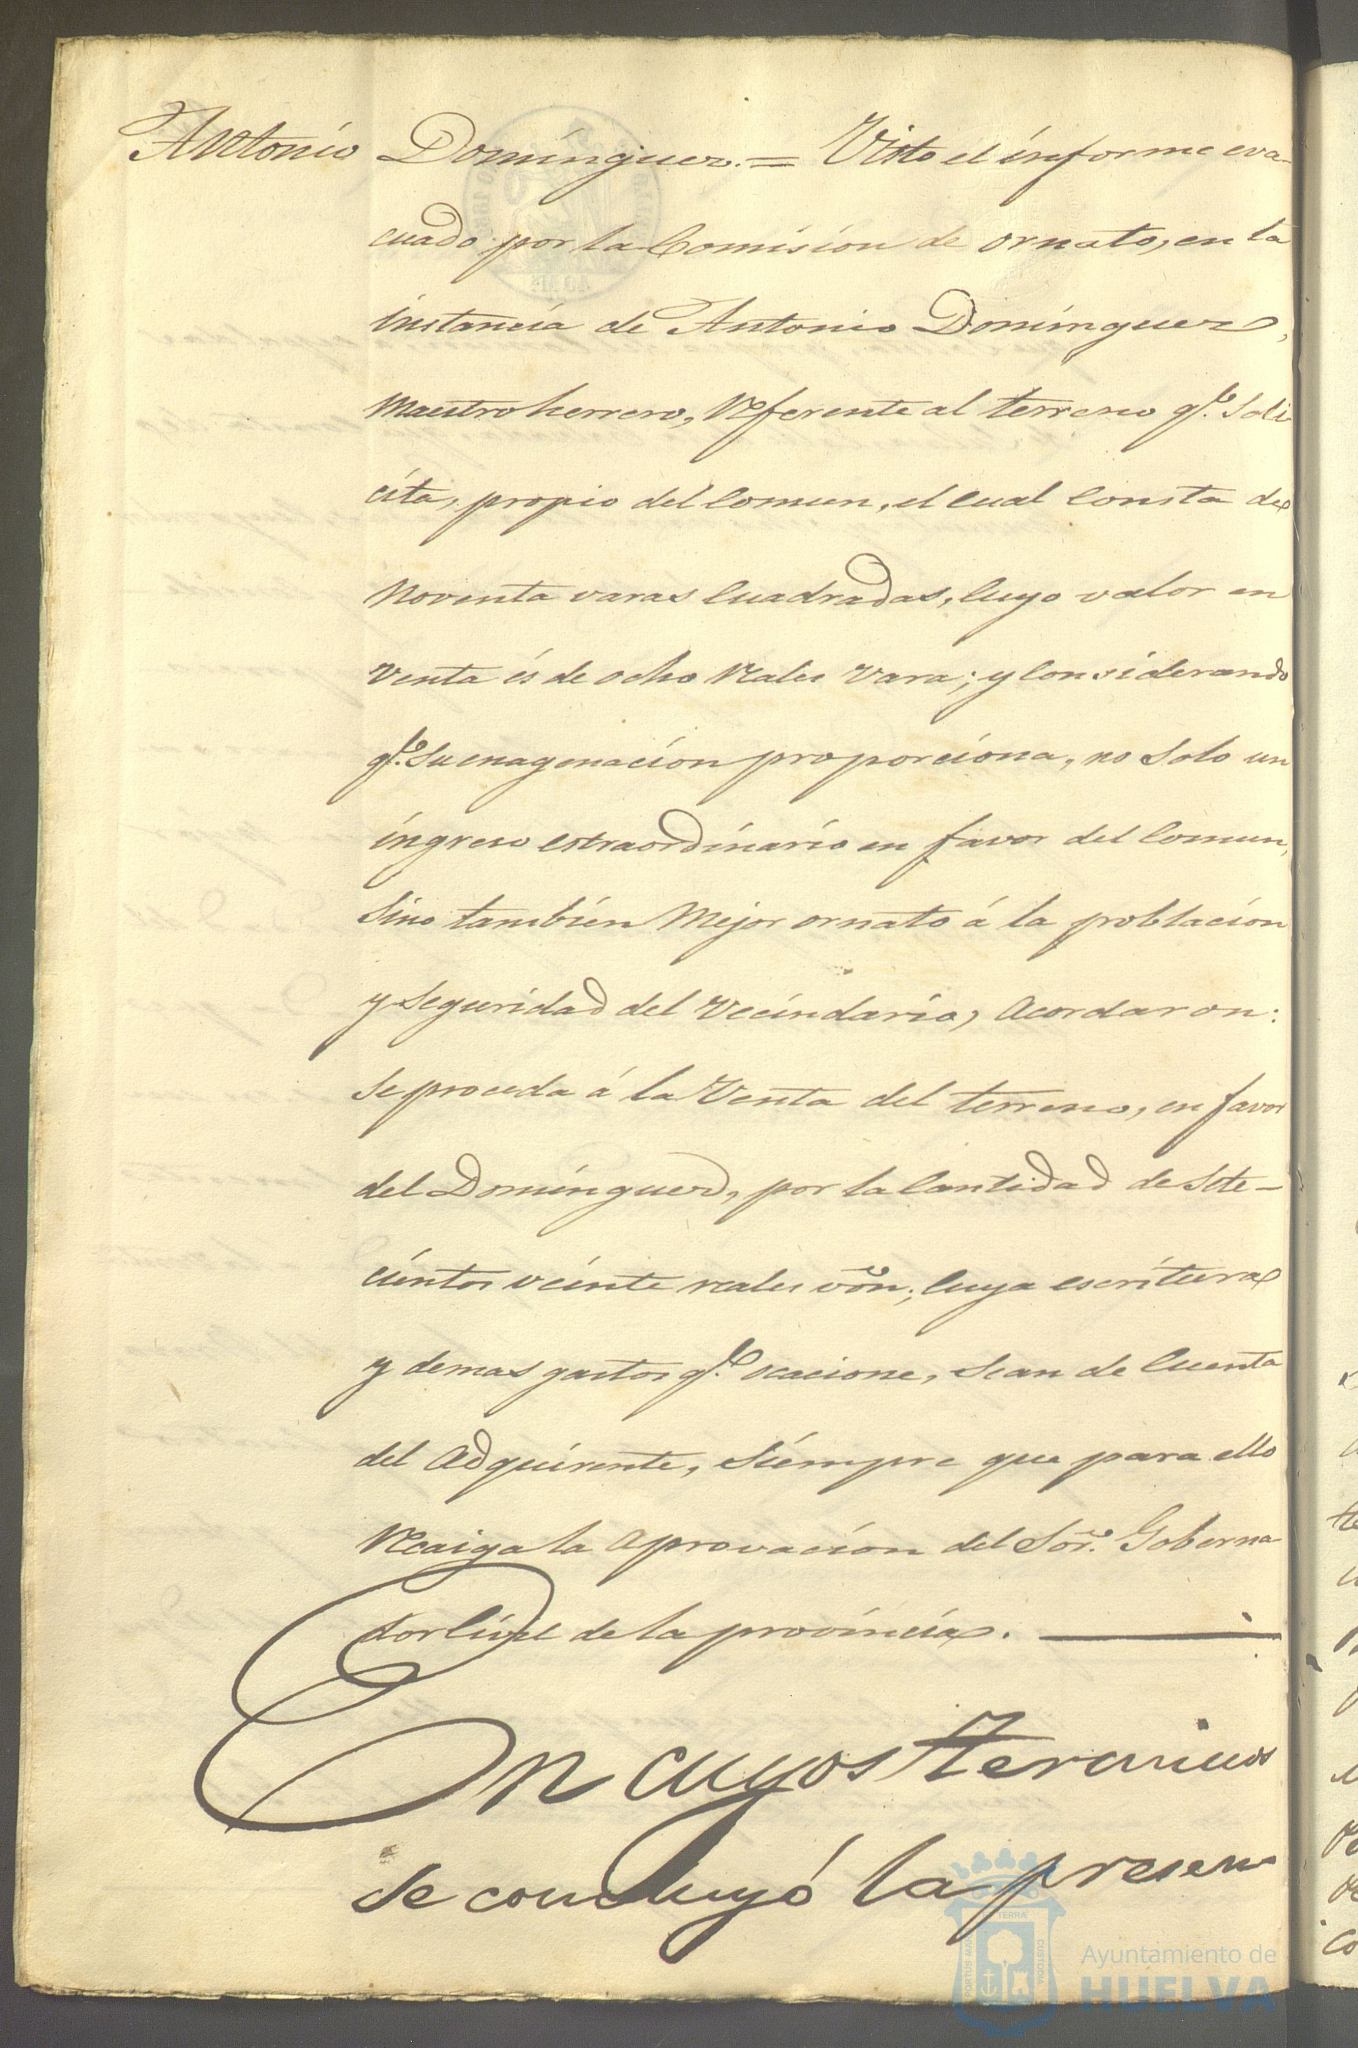 Antonio Dominguez. = Visto el informe eva-
cuado por la Comision de ornato, en la
instancia de Antonio Dominguez,
Maestro herrero, referente al terreno q.e soli
cita, propio del Comun, el cual Consta de
Noventa varas Cuadradas, Cuyo valor en
Venta és de ocho reales Vara; y Considerando
q.e Su enagenacion proporciona, no Solo un
ingreso estraordinario en favor del Comun,
Sino tambien Mejor ornato á la problacion
y Seguridad del Vecindario, Acordaron:
Se proceda á la Venta del terreno, en favor
del Dominguez, por la Cantidad de Sete-
cientos veinte reales võn; Cuya escritura
y demas gastos q.e ocacione, Sean de Cuenta
del Adquirente, Siempre que para ello
recaiga la aprovacion del Sõr. Goberna
dor Civil de la provincia.
En cuyos terminos
se concluyó la presen
PORTUS MARIS ET TERRA CUSTODIA
Ayuntamiento de
HUELVA